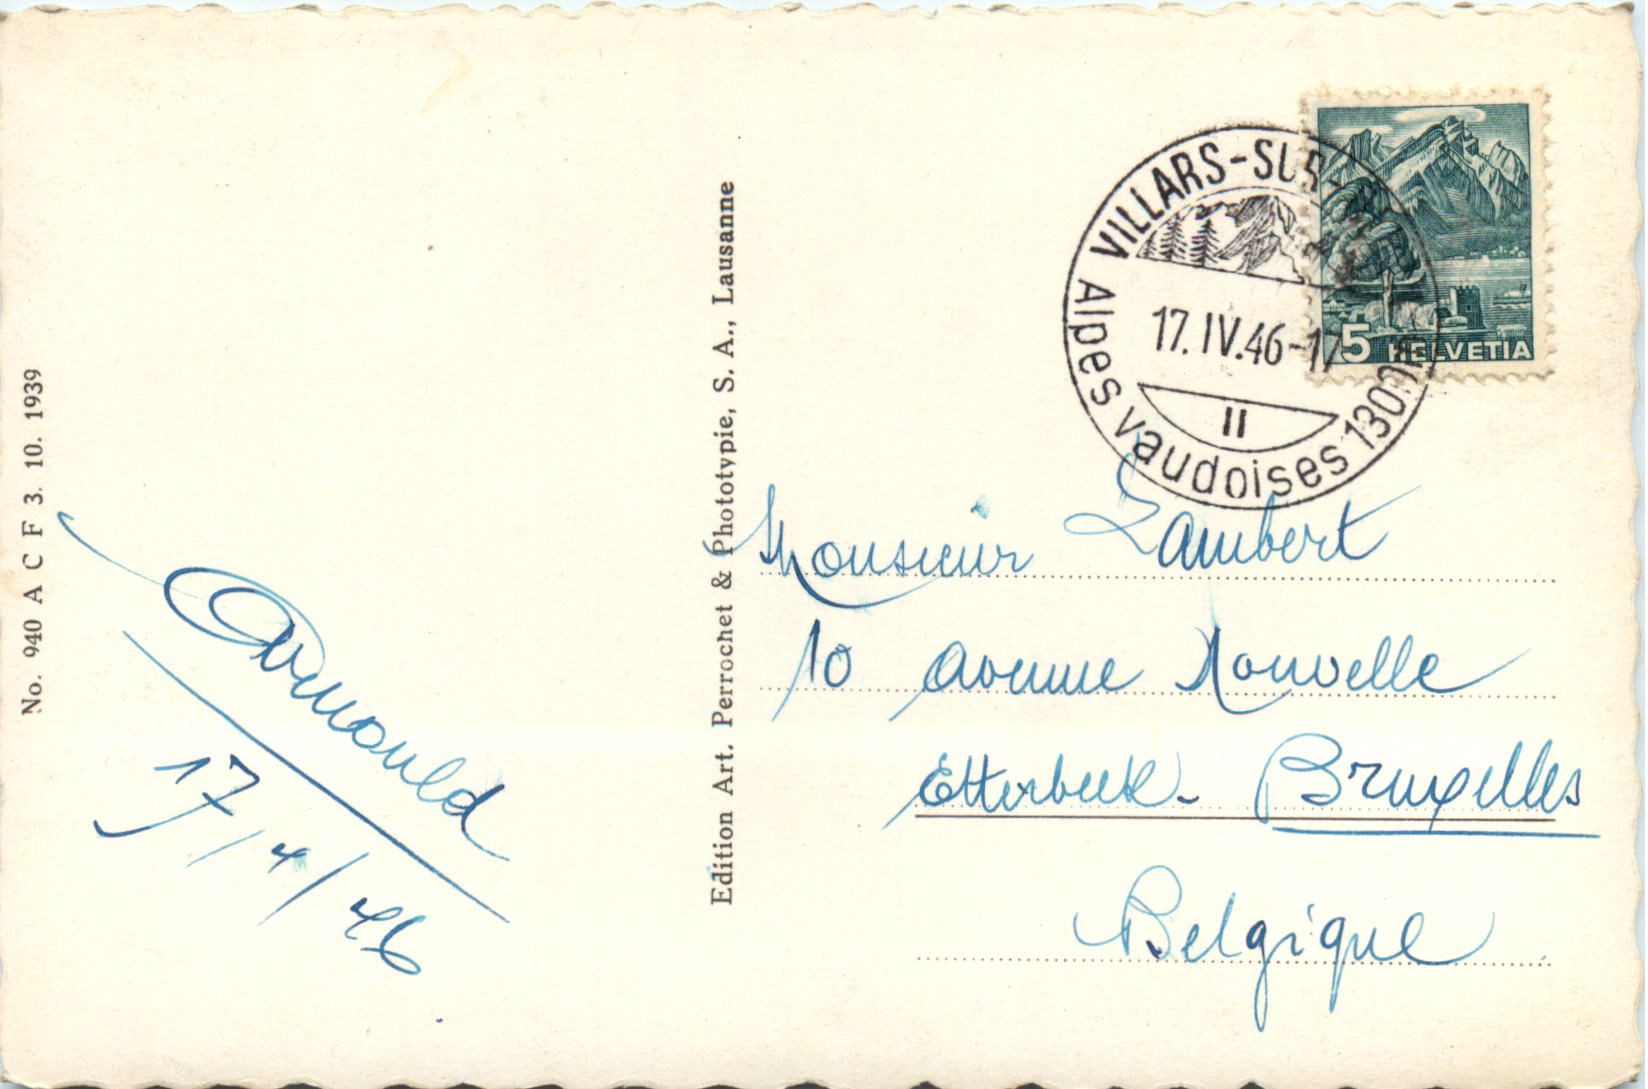 No. 940 A C F 3. 10. 1939
Arnould
17/4/46
Edition Art. Perrochet & Phototypie, S. A., Lausanne
VILLARS-SUR-
17.IV.46-17
II
Alpes vaudoises 1300m
5 HELVETIA
Monsieur Lambert
10 Avenue Nouvelle
Etterbeek - Bruxelles
Belgique